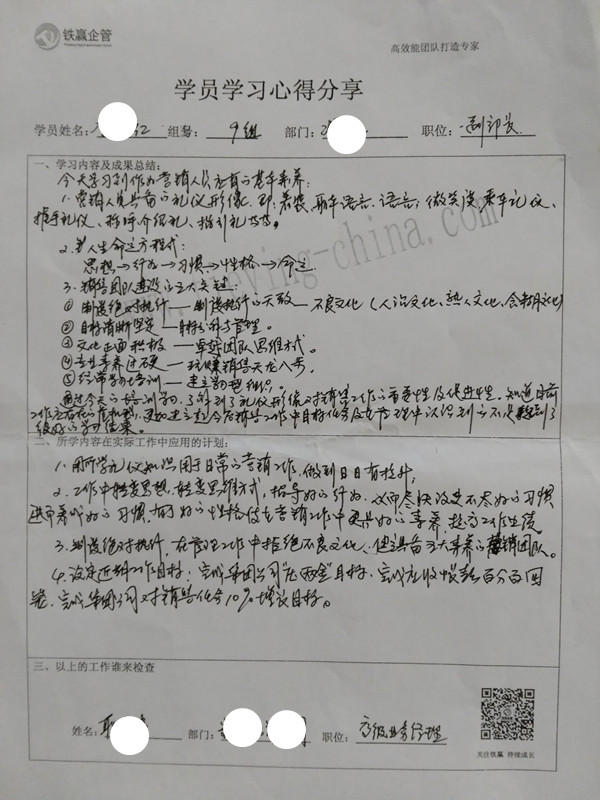 铁赢企管
高效能团队打造专家
学员学习心得分享
学员姓名: 红 组别: 9组 部门: 职位: 副部长
一、学习内容及成果总结:
今天学习到作为营销人员应有的基本素养:
1.营销人员具备的礼仪形象,即:着装、聊天语言、语言;微笑 乘车礼仪、
握手礼仪、称呼介绍礼、指引礼等等。
2. 人生命运方程式:
思想→行为→习惯→性格→命运
3.销售团队建设的五大关键:
① 制度绝对执行——制度执行的天敌——不良文化(人治文化、熟人文化、含糊文化)
② 目标清晰坚定——目标 管理。
③ 文化正面积极——卓越团队思维方式。
④ 专业素养过硬—— 销售天龙八步。
⑤ 经常学习培训——建立学习型组织。
通过今天的培训学习,了解到了礼仪形象对销售工作的重要性及促进性。知道目前
工作 销售工作中目标任务及 管理中认识到的不足 到了
很好的学习结果。
二、所学内容在实际工作中应用的计划:
1.用所学礼仪知识用于日常的营销工作,做到日日有提升;
2.工作中转变思想、转变思维方式,指导好的行为,从而尽快改进不好的习惯
进而养成好的习惯,用好的性格使在营销工作中更具好的素养,提高工作业绩
3.制度绝对执行,在管理工作中拒绝不良文化、使具备五大素养的营销团队。
4.设定近期工作目标:完成集团公司“ ”目标、完成应收账款百分百回
笼、完成集团公司对销售任务10%增长目标。
三、以上的工作谁来检查
姓名: 部门: 职位: 高级业务经理
关注铁赢 持续成长